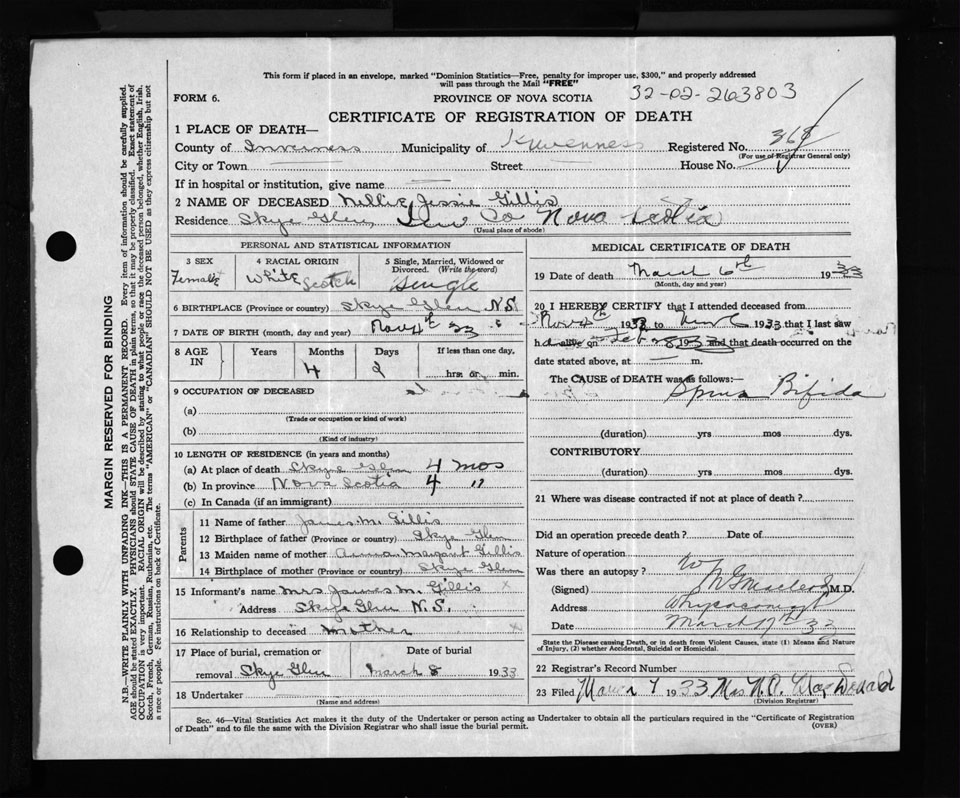 This form if placed in an envelope, marked "Dominion Statistics—Free, penalty for improper use, $300," and properly addressed
will pass through the Mail "FREE"
FORM 6.
PROVINCE OF NOVA SCOTIA
32-02-263803
CERTIFICATE OF REGISTRATION OF DEATH
1 PLACE OF DEATH—
County of Inverness Municipality of Inverness Registered No. 368
(For use of Registrar General only)
City or Town Street House No.
If in hospital or institution, give name
2 NAME OF DECEASED Nellie Jessie Gillis
Residence Skye Glen, Inv Co Nova Scotia
(Usual place of abode)
PERSONAL AND STATISTICAL INFORMATION
3 SEX
Female
4 RACIAL ORIGIN
White Scotch
5 Single, Married, Widowed or
Divorced. (Write the word)
Single
6 BIRTHPLACE (Province or country) Skye Glen N.S.
7 DATE OF BIRTH (month, day and year) Nov 4th
8 AGE IN
Years Months Days If less than one day,
4 2 hrs. or min.
9 OCCUPATION OF DECEASED
(a)
(Trade or occupation or kind of work)
(b)
(Kind of industry)
10 LENGTH OF RESIDENCE (in years and months)
(a) At place of death Skye Glen 4 mos
(b) In province Nova Scotia 4 "
(c) In Canada (if an immigrant)
Parents
11 Name of father James M. Gillis
12 Birthplace of father (Province or country) Skye Glen
13 Maiden name of mother Anna Margaret Gillis
14 Birthplace of mother (Province or country) Skye Glen
15 Informant's name Mrs James M. Gillis
Address Skye Glen N.S.
16 Relationship to deceased Mother
17 Place of burial, cremation or Date of burial
removal Skye Glen March 8 1933
18 Undertaker
(Name and address)
MEDICAL CERTIFICATE OF DEATH
19 Date of death March 6th 1933
(Month, day and year)
20 I HEREBY CERTIFY that I attended deceased from
Nov 4th 193 to 1933 that I last saw
h alive on Feb 28 1933 and that death occurred on the
date stated above, at — m.
The CAUSE of DEATH was as follows:
Spina Bifida
(duration) yrs mos dys.
CONTRIBUTORY
(duration) yrs mos dys.
21 Where was disease contracted if not at place of death?
Did an operation precede death? Date of
Nature of operation
Was there an autopsy?
(Signed) M.D.
Address Whycocomagh
Date March 17th 33
State the Disease causing Death, or in death from Violent Causes, state (1) Means and Nature
of Injury, (2) whether Accidental, Suicidal or Homicidal.
22 Registrar's Record Number
23 Filed March 7 1933 Mrs. N. D. MacDonald
(Division Registrar)
Sec. 46—Vital Statistics Act makes it the duty of the Undertaker or person acting as Undertaker to obtain all the particulars required in the "Certificate of Registration
of Death" and to file the same with the Division Registrar who shall issue the burial permit.
(OVER)
MARGIN RESERVED FOR BINDING
N.B.—WRITE PLAINLY WITH UNFADING INK—THIS IS A PERMANENT RECORD. Every item of information should be carefully supplied.
AGE should be stated EXACTLY. PHYSICIANS should STATE CAUSE OF DEATH in plain terms, so that it may be properly classified. Exact statement of
OCCUPATION is very important. RACIAL ORIGIN will be described by stating to what people or race the deceased person belonged, whether English, Irish,
Scotch, French, German, Russian, Ruthenian, etc. The terms "AMERICAN" or "CANADIAN" SHOULD NOT BE USED as they express citizenship but not
a race or people. See instructions on back of Certificate.